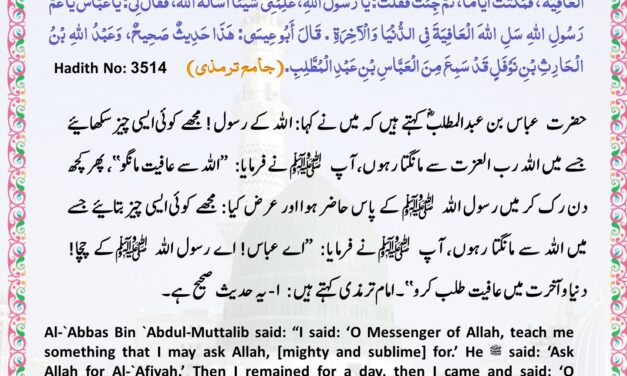 العَافِيَةَ، فَمَكَثْتُ أَيَّامًا، ثُمَّ جِئْتُ فَقُلْتُ: يَا رَسُولَ اللهِ، عَلِّمْنِي شَيْئًا أَسْأَلُهُ اللهَ، فَقَالَ لِي: يَا عَبَّاسُ يَا عَمَّ
رَسُولِ اللهِ سَلِ اللهَ الْعَافِيَةَ فِي الدُّنْيَا وَالْآخِرَةِ . قَالَ أَبُو عِيسَى: هَذَا حَدِيثٌ صَحِيحٌ، وَعَبْدُ اللهِ بْنُ
الْحَارِثِ بْنِ نَوْفَلٍ قَدْ سَمِعَ مِنَ الْعَبَّاسِ بْنِ عَبْدِ الْمُطَّلِبِ. (جامع ترمذی) Hadith No: 3514
حضرت عباس بن عبدالمطلبؓ کہتے ہیں کہ میں نے کہا: اللہ کے رسول! مجھے کوئی ایسی چیز سکھائیے
جسے میں اللہ رب العزت سے مانگتا رہوں، آپ ﷺ نے فرمایا: ”اللہ سے عافیت مانگو“، پھر کچھ
دن رک کر میں رسول اللہ ﷺ کے پاس حاضر ہوا اور عرض کیا: مجھے کوئی ایسی چیز بتائیے جسے
میں اللہ سے مانگتا رہوں، آپ ﷺ نے فرمایا: ”اے عباس! اے رسول اللہ ﷺ کے چچا!
دنیا و آخرت میں عافیت طلب کرو“۔ امام ترمذی کہتے ہیں: ۱- یہ حدیث صحیح ہے۔
Al-`Abbas Bin `Abdul-Muttalib said: “I said: ‘O Messenger of Allah, teach me
something that I may ask Allah, [mighty and sublime] for.’ He ﷺ said: ‘Ask
Allah for Al-`Afiyah.’ Then I remained for a day, then I came and said: ‘O